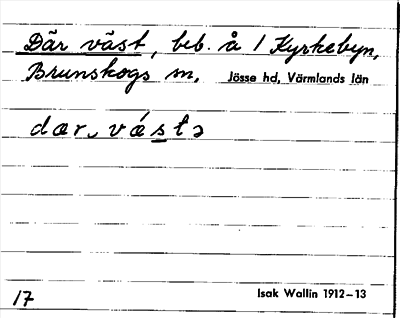 Där väst, beb. å 1 Kyrkebyn,
Brunskogs sn, Jösse hd, Värmlands län
dær, vǽstə
17 Isak Wallin 1912-13